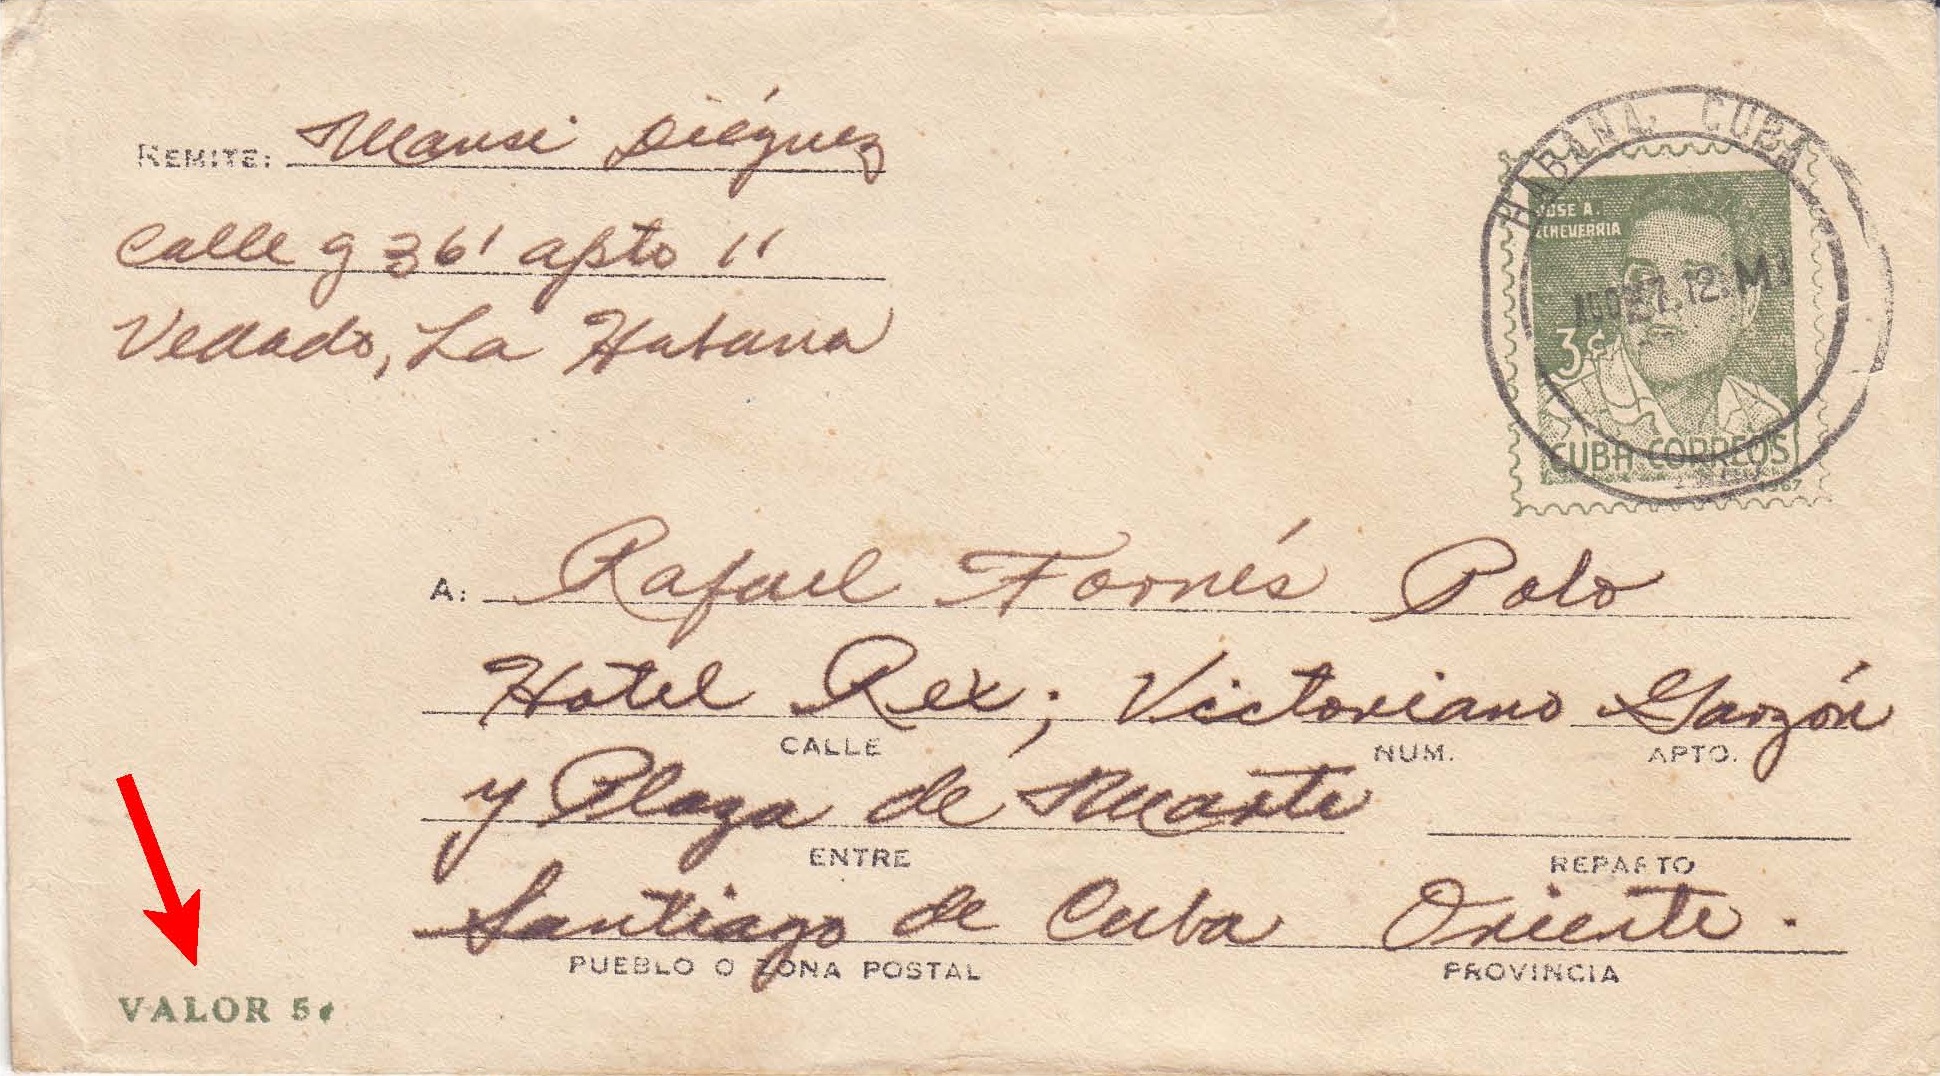 REMITE: Mansi Diéguez
Calle g 361 apto 11
Vedado, La Habana
HABANA, CUBA
JOSE A.
ECHEVERRIA
AGO 27.12.M
3¢
CUBA CORREOS
1967
A: Rafael Fornés Polo
Hotel Rex; Victoriano Garzón
CALLE NUM. APTO.
y Plaza de Marte
ENTRE REPARTO
Santiago de Cuba Oriente.
PUEBLO O ZONA POSTAL PROVINCIA
VALOR 5¢